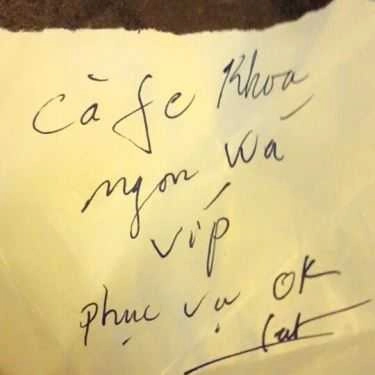 Cà fe Khoa
ngon wá
víp
phục vụ OK